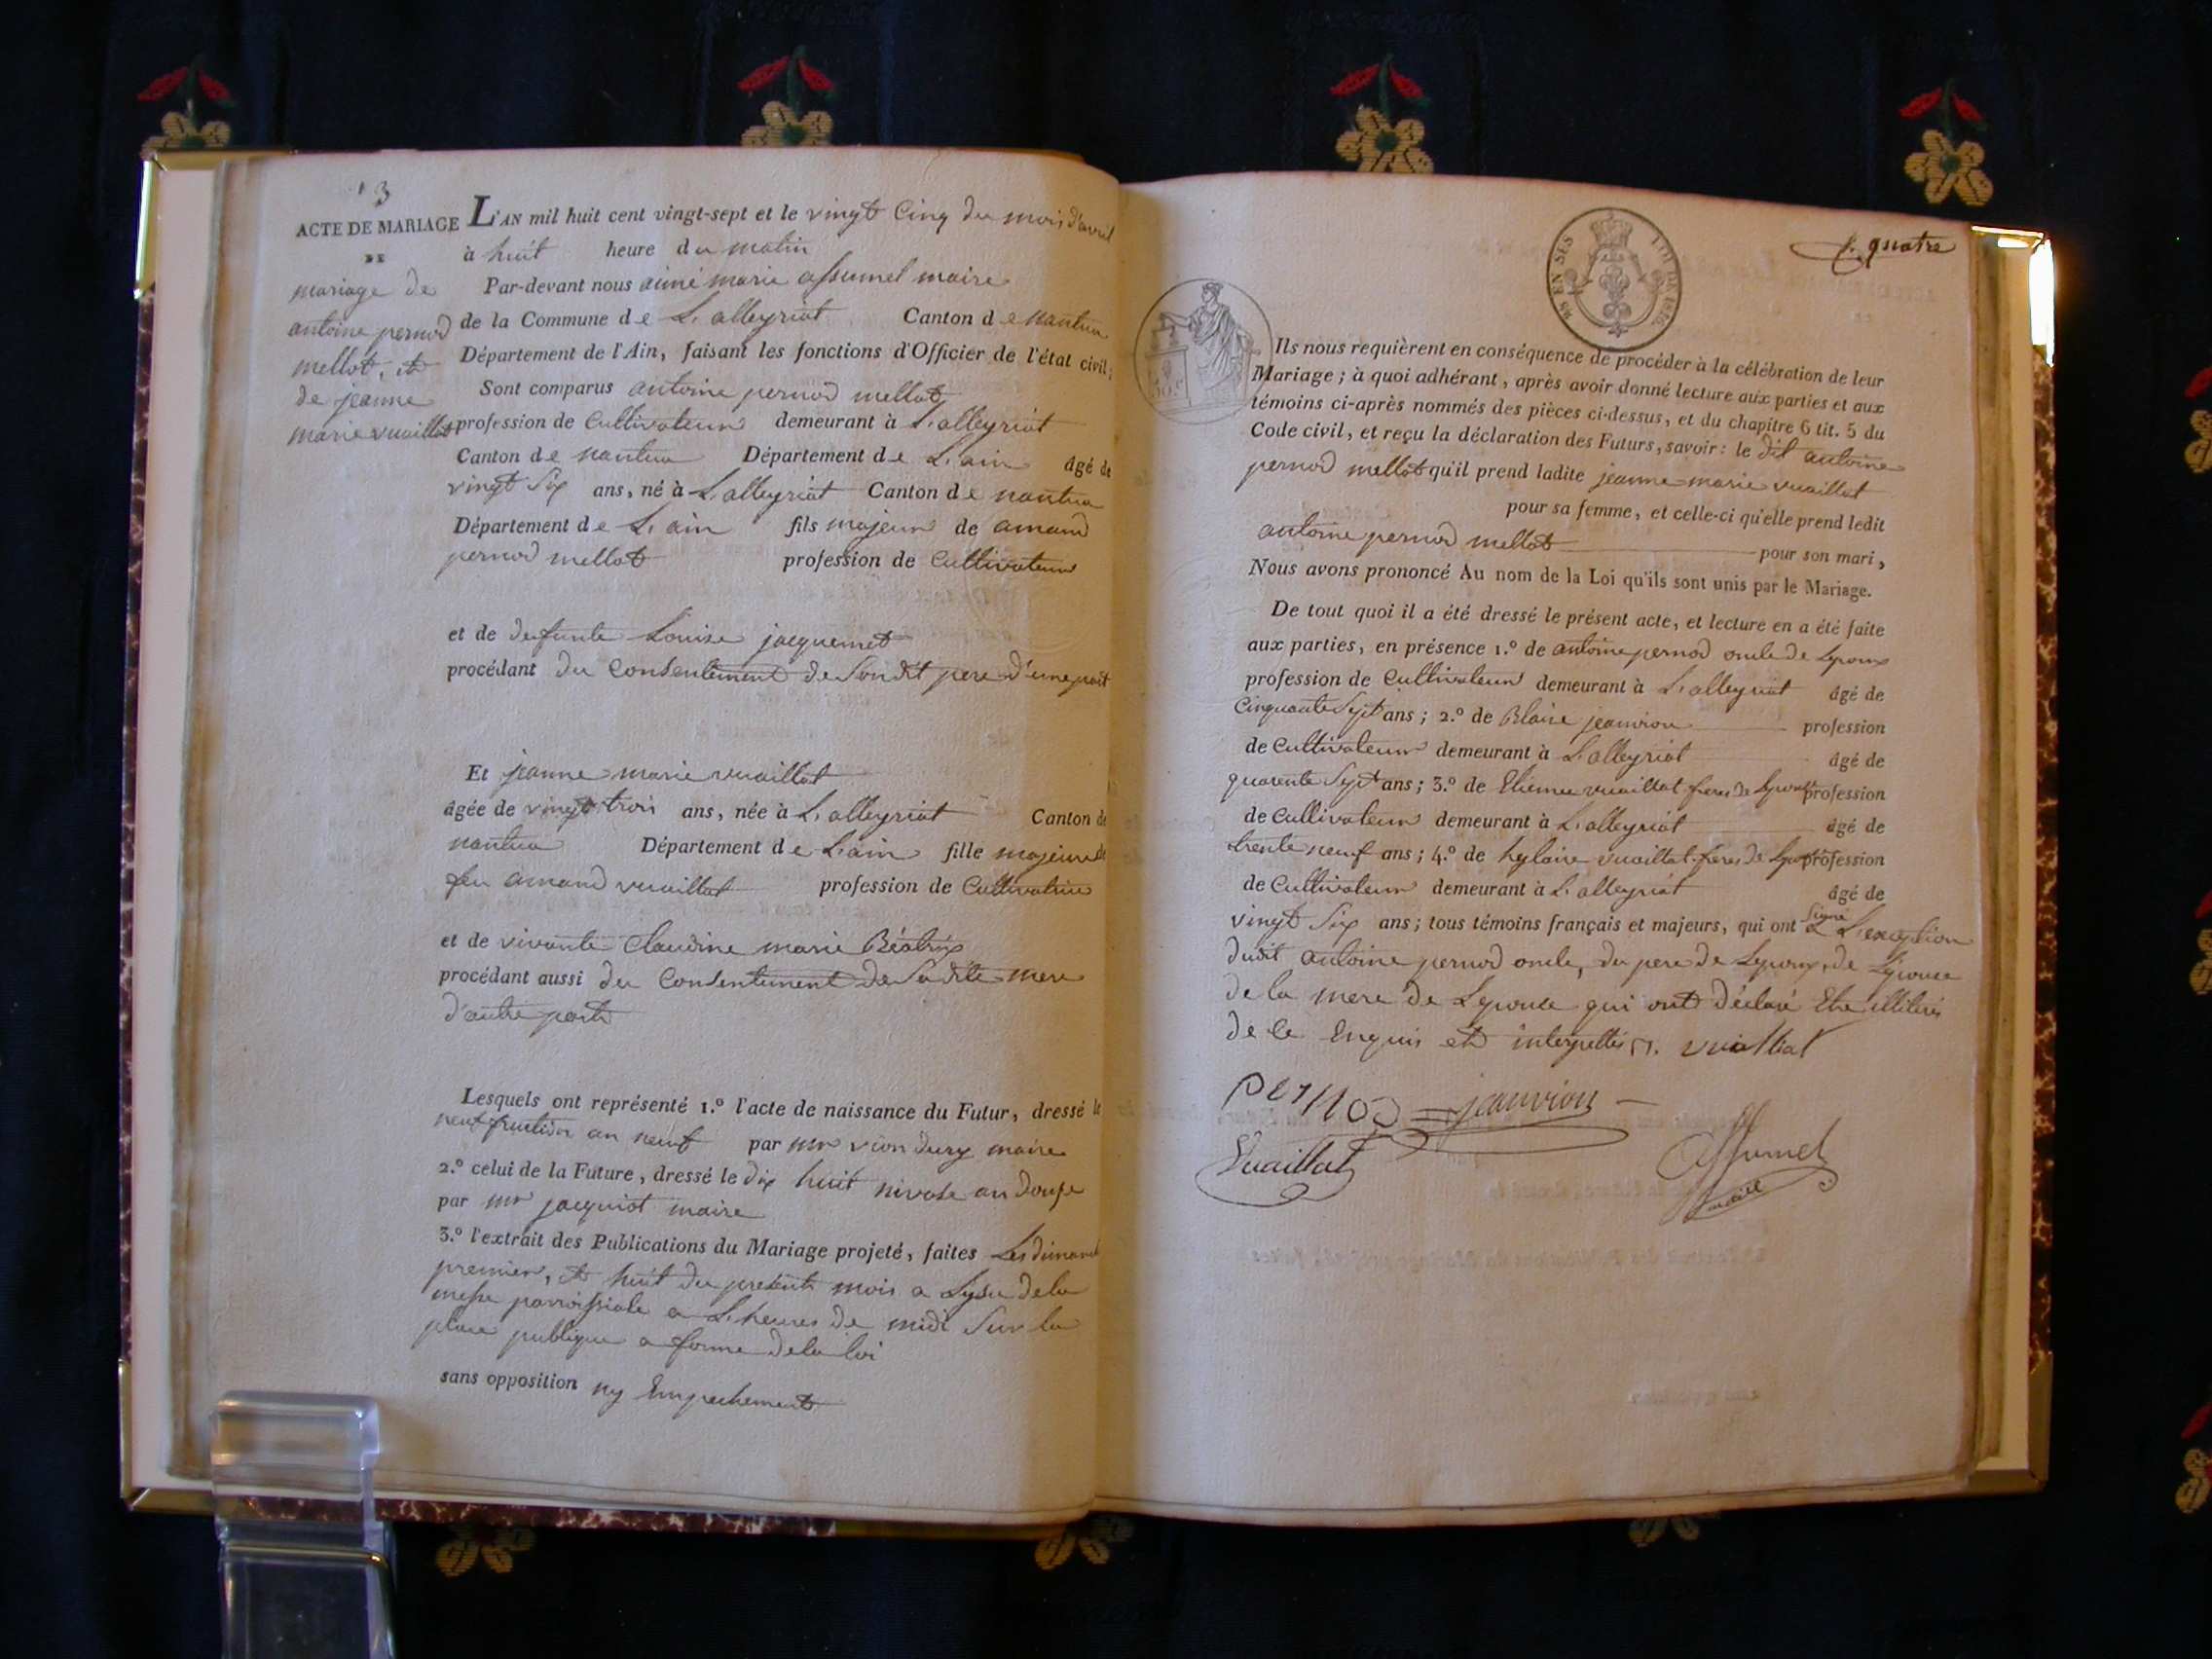 13
ACTE DE MARIAGE
DE
mariage de
antoine pernod
mellot, et
de jeanne
marie vuaillat
L'AN mil huit cent vingt-sept et le vingt Cinq du mois d'avril
à huit heure du matin
Par-devant nous aimé marie assumel maire
de la Commune de L'alleyriat Canton de nantua
Département de l'Ain, faisant les fonctions d'Officier de l'état civil;
Sont comparus antoine pernod mellot
profession de Cultivateur demeurant à L'alleyriat
Canton de nantua Département de L'ain âgé de
vingt Six ans, né à L'alleyriat Canton de nantua
Département de L'ain fils majeur de amand
pernod mellot profession de Cultivateur
et de defunte Louise jacquemet
procédant du Consentement de Sondit pere d'une part
Et jeanne marie vuaillat
âgée de vingt trois ans, née à L'alleyriat Canton de
nantua Département de L'ain fille majeure de
feu amand vuaillat profession de Cultivatrice
et de vivante Claudine marie Béatrix
procédant aussi du Consentement de Sadite mere
d'autre part
Lesquels ont représenté 1.º l'acte de naissance du Futur, dressé le
neuf fructidor an neuf par mr vion dury maire
2.º celui de la Future, dressé le dix huit nivose an douze
par mr jacquiot maire
3.º l'extrait des Publications du Mariage projeté, faites Les dimanch
premier, et huit du present mois a Lysu dela
messe parroissiale a L'heures de midi Sur la
place publique a forme dela loi
sans opposition ny Empechement
f. quatre
Ils nous requièrent en conséquence de procéder à la célébration de leur
Mariage; à quoi adhérant, après avoir donné lecture aux parties et aux
témoins ci-après nommés des pièces ci-dessus, et du chapitre 6 tit. 5 du
Code civil, et reçu la déclaration des Futurs, savoir: le dit antoine
pernod mellot qu'il prend ladite jeanne marie vuaillat
pour sa femme, et celle-ci qu'elle prend ledit
antoine pernod mellot pour son mari,
Nous avons prononcé Au nom de la Loi qu'ils sont unis par le Mariage.
De tout quoi il a été dressé le présent acte, et lecture en a été faite
aux parties, en présence 1.º de antoine pernod oncle de Lepoux
profession de Cultivateur demeurant à L'alleyriat âgé de
Cinquante Sept ans; 2.º de Blaise jeanvion profession
de Cultivateur demeurant à L'alleyriat âgé de
quarente Sept ans; 3.º de Etienne vuaillat frere de Lepouse profession
de Cultivateur demeurant à L'alleyriat âgé de
trente neuf ans; 4.º de hylaire vuaillat frere de Lepouse profession
de Cultivateur demeurant à L'alleyriat âgé de
vingt Six ans; tous témoins français et majeurs, qui ont Signé a L'exception
dudit antoine pernod oncle, du pere de Lepoux, de Lepouse
de la mere de Lepouse qui ont déclaré Etre illiterés
de ce Enquis et interpellés vuaillat
pernod jeanvion
Vuaillat
Assumel
maire